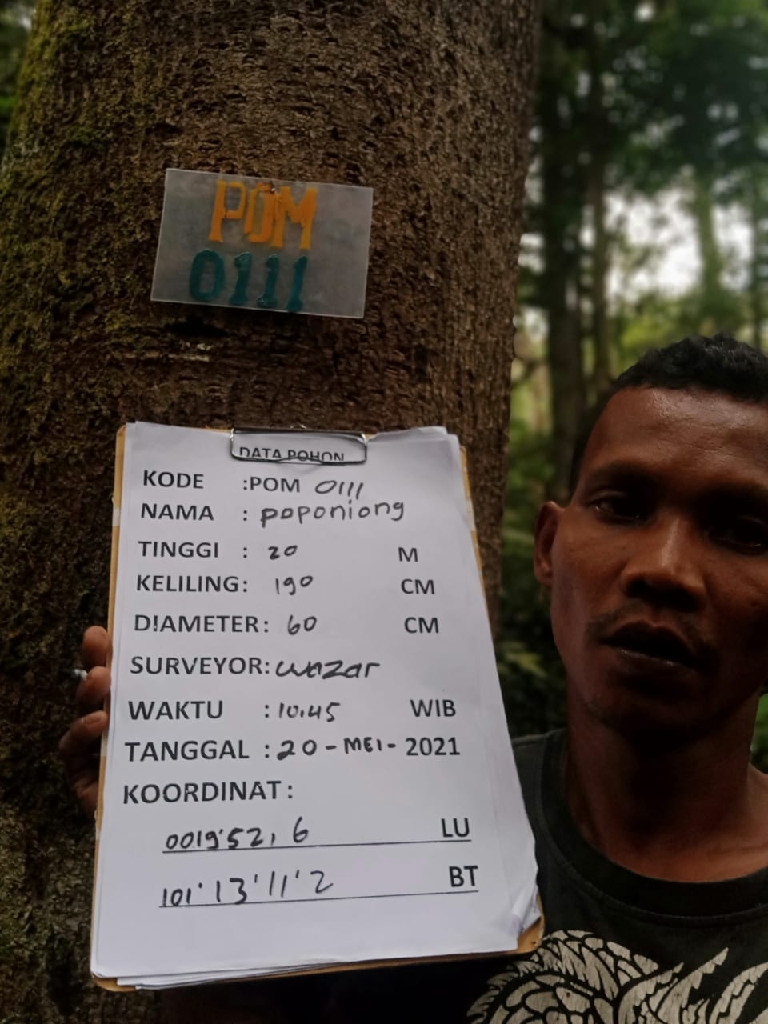 POM
0111
DATA POHON
KODE :POM 0111
NAMA : poponiong
TINGGI : 20 M
KELILING: 190 CM
DIAMETER: 60 CM
SURVEYOR: wazar
WAKTU : 10.45 WIB
TANGGAL : 20-MEI-2021
KOORDINAT:
0019'52, 6 LU
101'13'11'2 BT